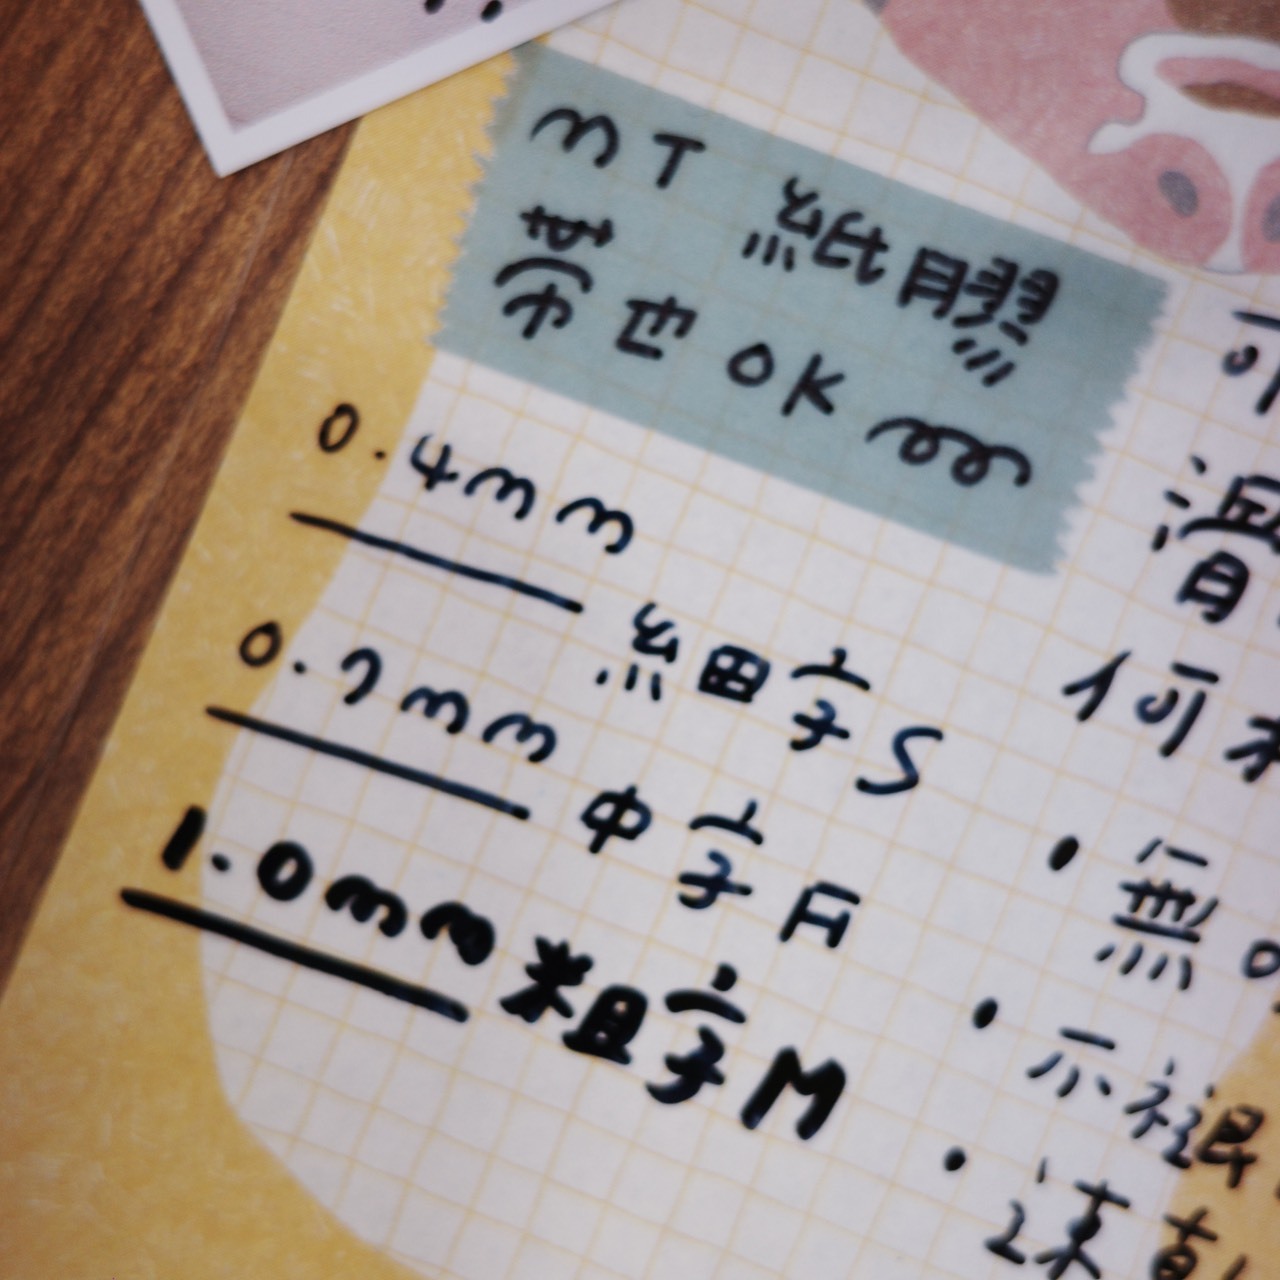 mT 紙膠
帶也OK
0.4mm
細字S
0.7mm
中字F
1.0mm
粗字M
可
滑
何
・無
・不褪
・速乾